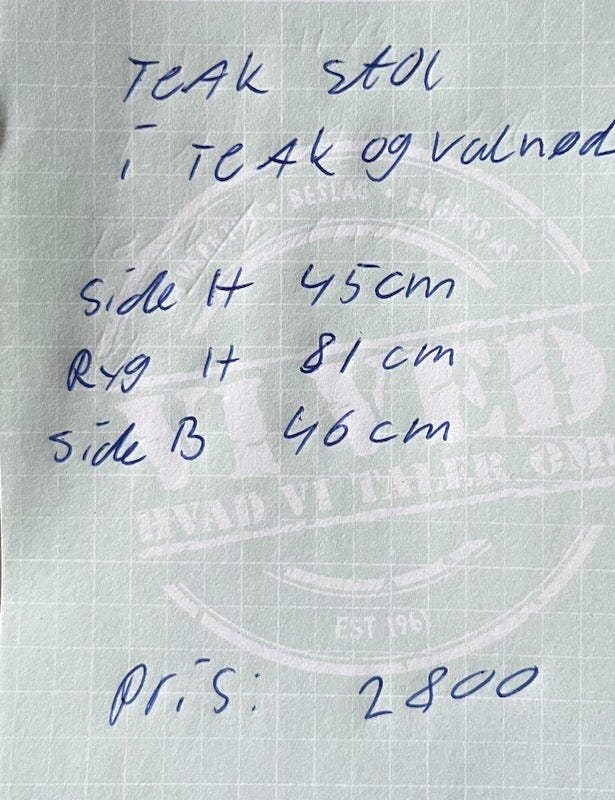 TEAK stol
i TEAK og valnød
side H 45 cm
Ryg H 81 cm
side B 46 cm
Pris: 2800
BESLAG • ENGROS AS
VI VED
HVAD VI TALER OM!
EST 1961